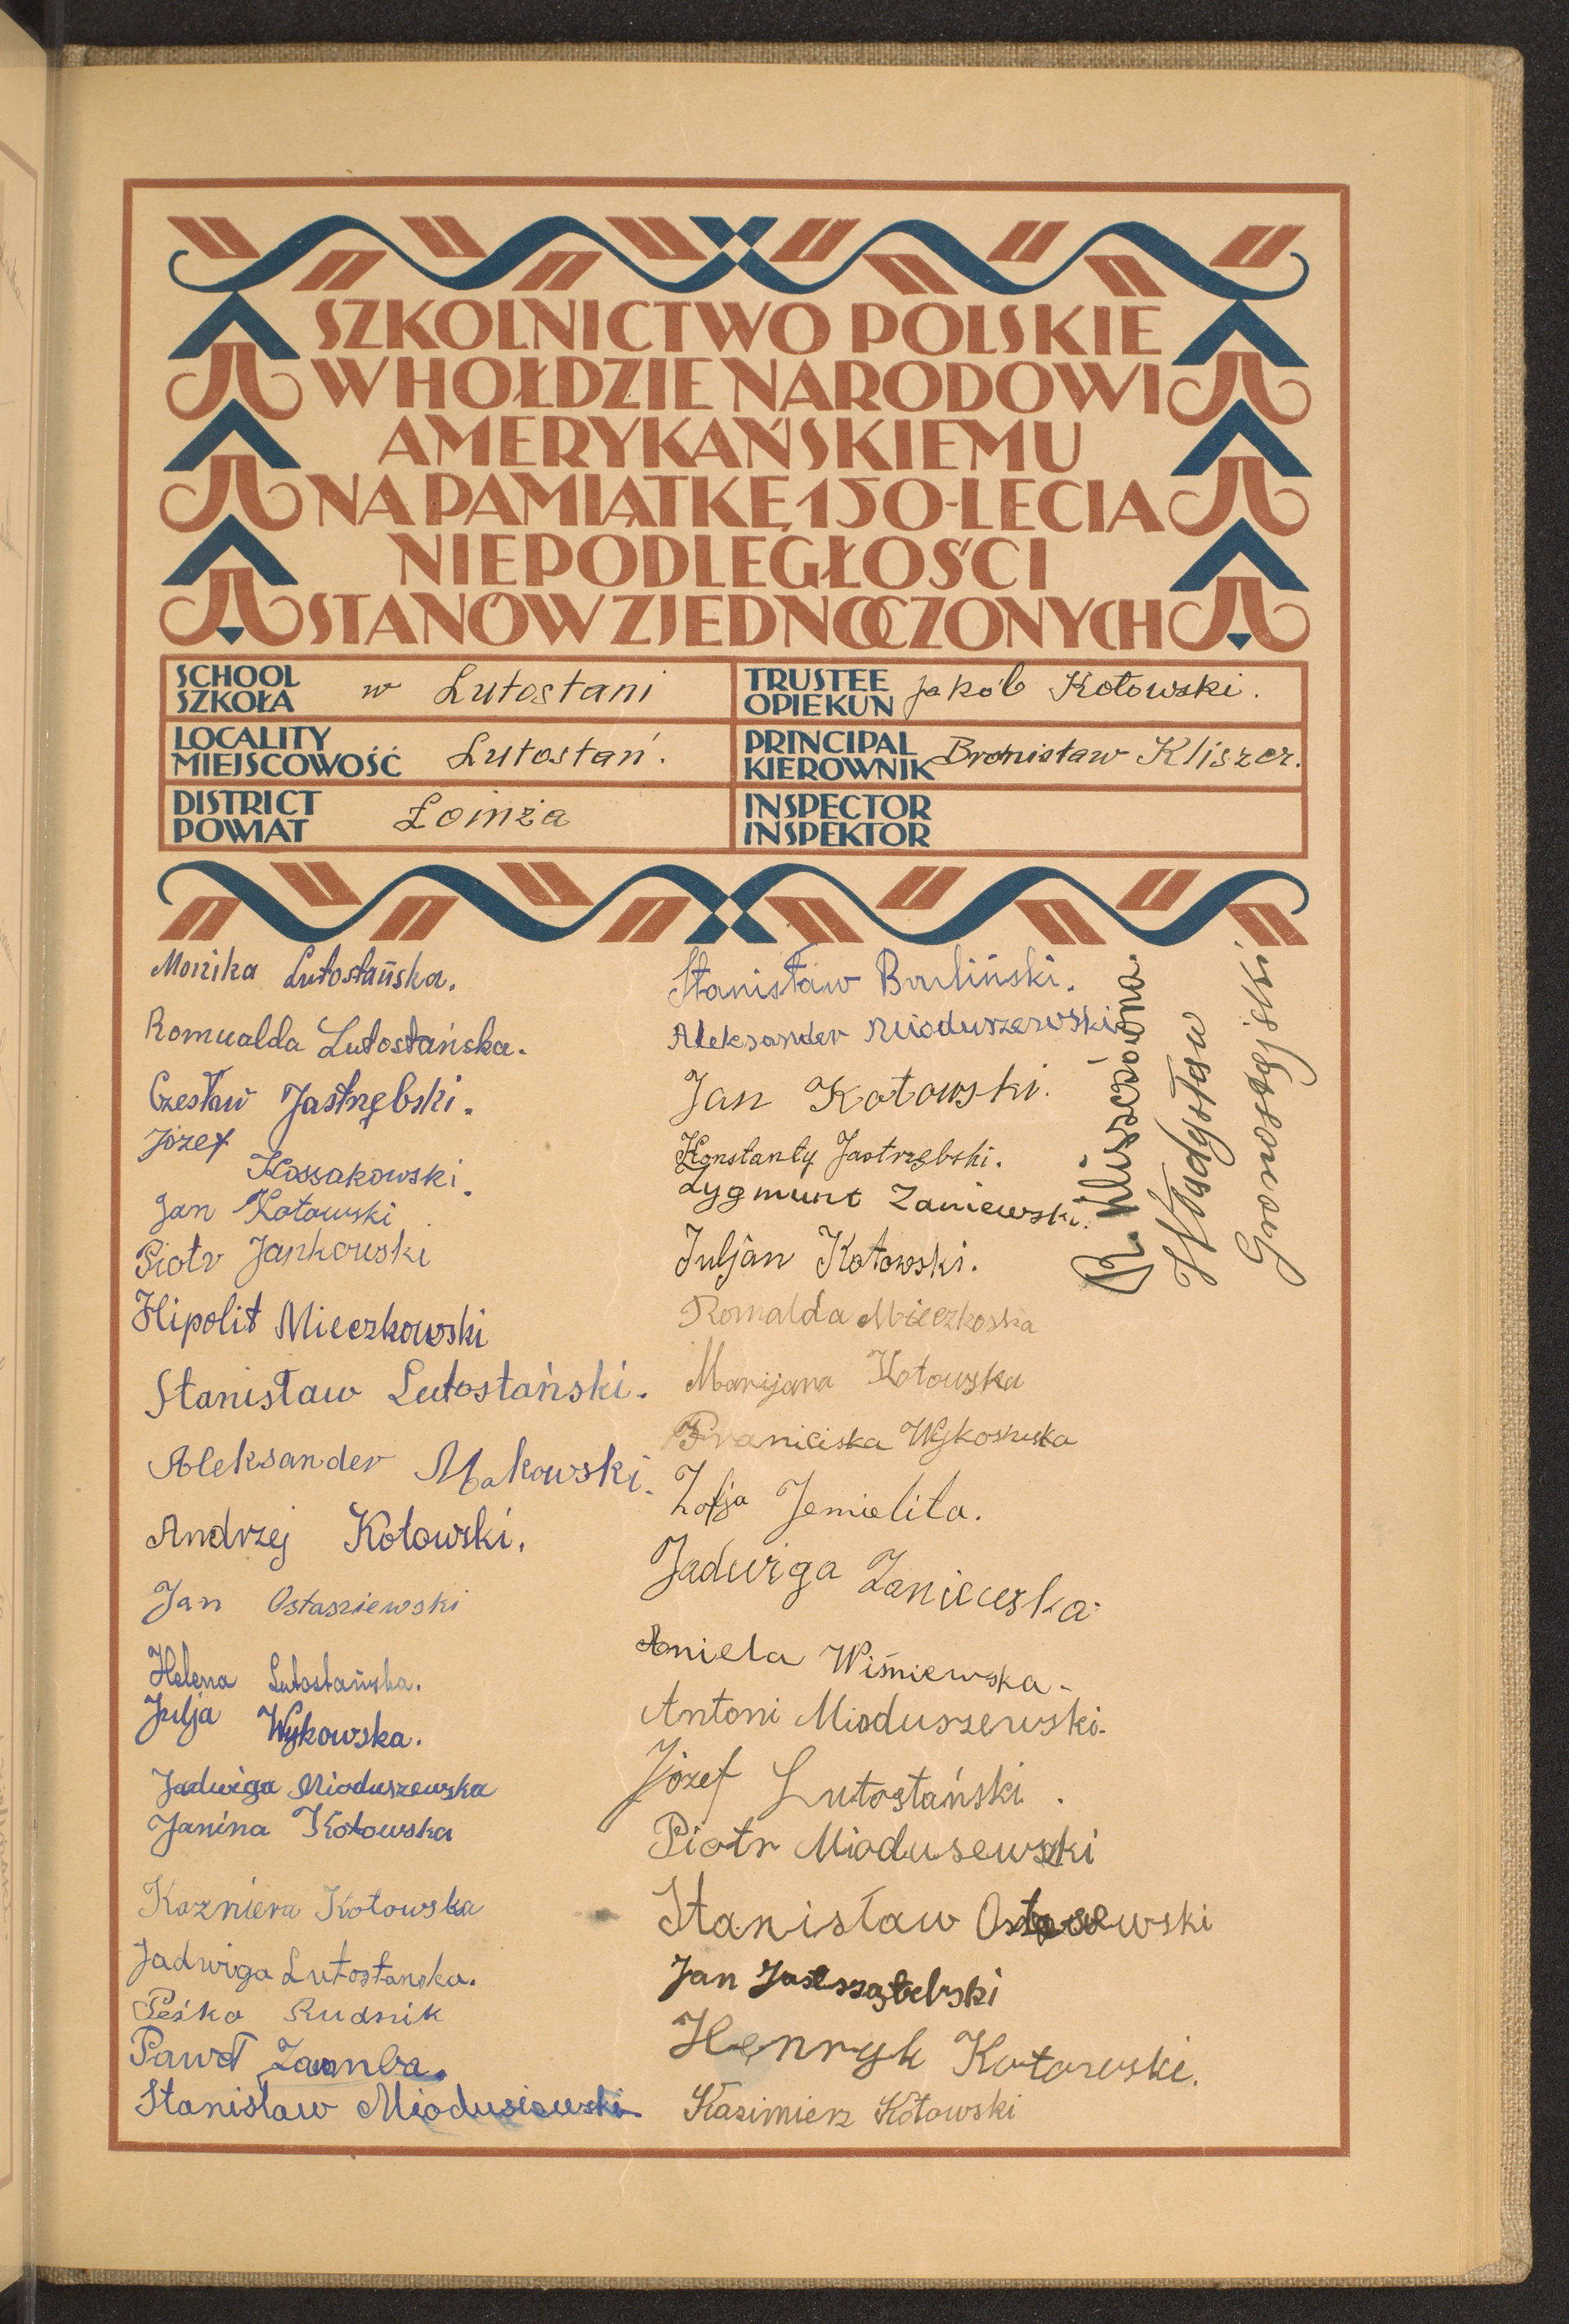 SZKOLNICTWO POLSKIE
W HOŁDZIE NARODOWI
AMERYKAŃSKIEMU
NA PAMIĄTKĘ 150-LECIA
NIEPODLEGŁOŚCI
STANÓW ZJEDNOCZONYCH
SCHOOL
SZKOŁA
w Lutostani
TRUSTEE
OPIEKUN
Jakób Kotowski.
LOCALITY
MIEJSCOWOŚĆ
Lutostań.
PRINCIPAL
KIEROWNIK
Bronisław Kliszcz.
DISTRICT
POWIAT
Łomża
INSPECTOR
INSPEKTOR
Monika Lutostańska.
Romualda Lutostańska.
Czesław Jastrzębski.
Józef
Kossakowski.
Jan Kotowski
Piotr Jankowski
Hipolit Mieczkowski
Stanisław Lutostański.
Aleksander Makowski.
Andrzej Kotowski.
Jan Ostaszewski
Helena Lutostańska.
Julja Wykowska.
Jadwiga Mioduszewska
Janina Kotowska
Kotowska
Jadwiga Lutostanska.
Peśka Rudnik
Paweł
Stanisław
Stanisław
Aleksander Mioduszewski
Jan Kotowski.
Konstanty Jastrzębski.
Zygmunt Zaniewski.
Juljan Kotowski.
Romalda Mieczkoska
Marijana Kotowska
Zofja Jemielita.
Jadwiga Zaniewska
Aniela Wiśniewska
Antoni Mioduszewski.
Józef Lutostański.
Piotr Miodusewski
Stanisław
Jan
Henryk Kotowski.
Kazimierz Kotowski
Władysław
Gronostajski